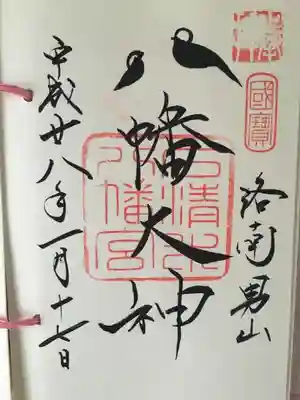 國寶
洛南男山
八幡大神
石清水
八幡宮
平成廿八年一月十七日